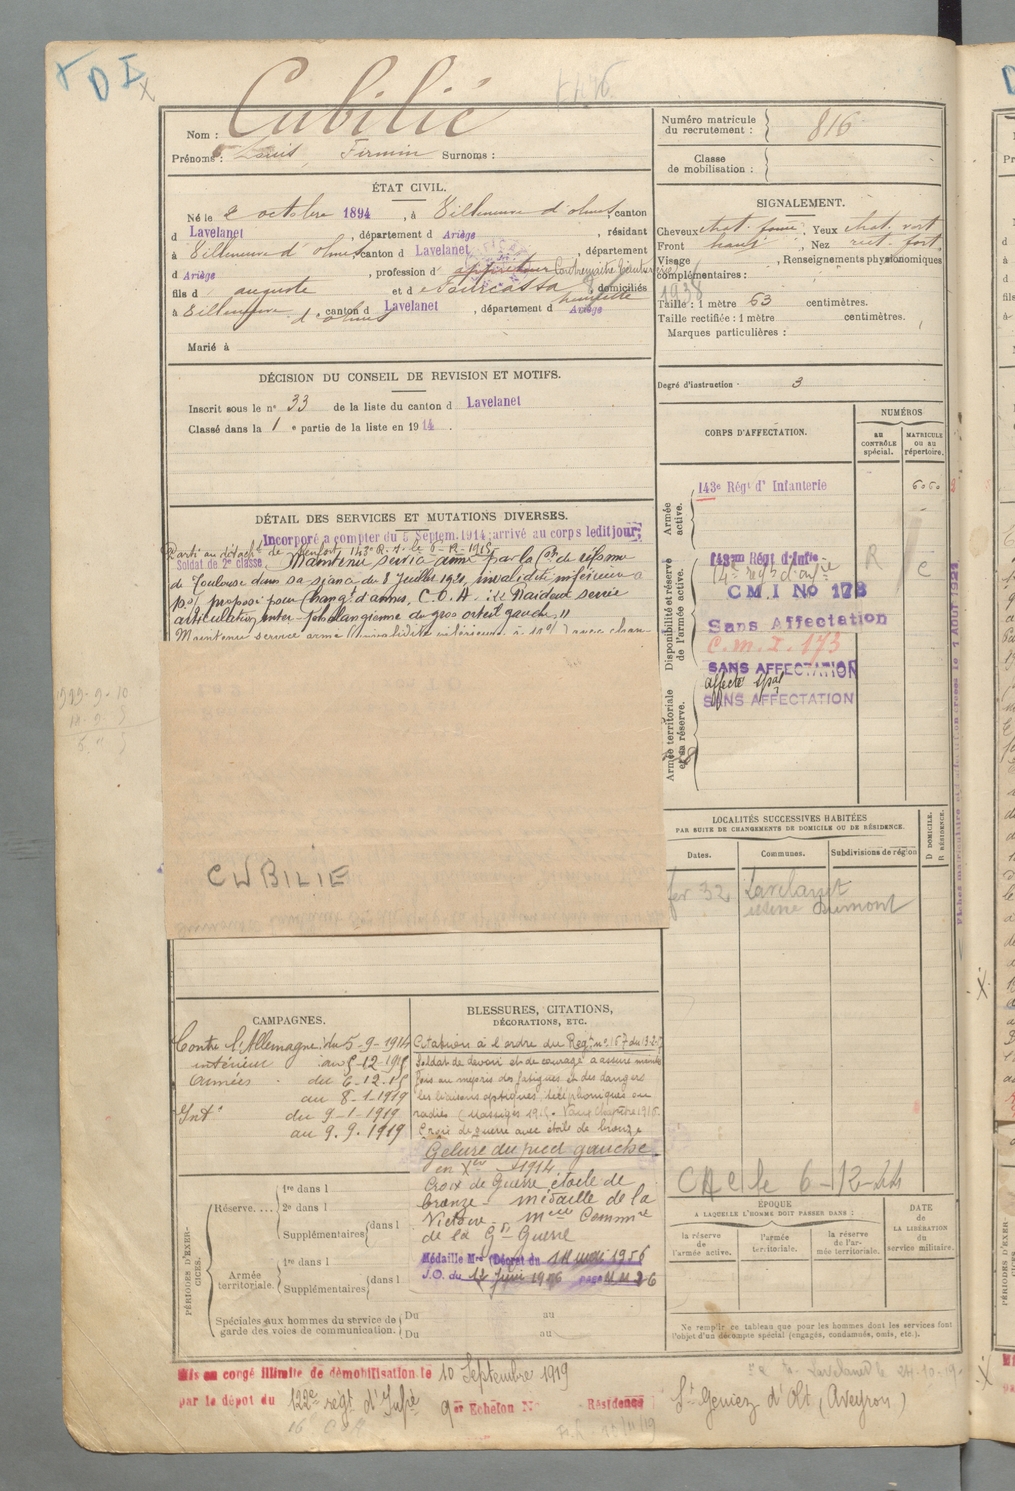 Cubilié
Nom :
Prénoms : Louis, Firmin Surnoms :
Numéro matricule du recrutement : 816
Classe de mobilisation :
ÉTAT CIVIL.
Né le 2 octobre 1894, à Villeneuve d'olmes, canton
d Lavelanet, département d Ariège, résidant
à Villeneuve d'olmes canton d Lavelanet, département
d Ariège, profession d' appréteur Contremaître
fils d auguste et d domiciliés
à Villeneuve d'olmes, canton d Lavelanet, département d Ariège
Marié à
SIGNALEMENT.
Cheveux chat. foncé, Yeux chat. vert
Front haut, Nez rect. fort.
Visage , Renseignements physionomiques
complémentaires :
1938
Taille : 1 mètre 63 centimètres.
Taille rectifiée : 1 mètre centimètres.
Marques particulières :
Degré d'instruction · 3
DÉCISION DU CONSEIL DE REVISION ET MOTIFS.
Inscrit sous le n° 33 de la liste du canton d Lavelanet
Classé dans la 1 e partie de la liste en 1914.
CORPS D'AFFECTATION.
NUMÉROS
AU CONTRÔLE spécial.
MATRICULE OU AU répertoire.
Armée active.
143e Régt d' Infanterie 6060
Disponibilité et réserve de l'armée active.
143em Régt d'Infie
R
C.M.I No 173
Sans Affectation
C.M.I. 173
SANS AFFECTATION
affecté spal
SANS AFFECTATION
Armée territoriale et sa réserve.
DÉTAIL DES SERVICES ET MUTATIONS DIVERSES.
Incorporé à compter du 5 Septem. 1914; arrivé au corps ledit jour;
Soldat de 2e classe,
Parti au détachet de Renfort 143e R.I. le 6-12-1915
Maintenu service armé par la Con de réforme
de Toulouse dans sa séance du 8 Juillet 1921, invalidité inférieure à
proposé pour Changt d'armes, C.O.A : Raideur serrée
articulation inter phalangienne du gros orteil gauche
Maintenu service armé (invalidité inférieure à 10%) avec chan-
CUBILIE
LOCALITÉS SUCCESSIVES HABITÉES
PAR SUITE DE CHANGEMENTS DE DOMICILE OU DE RÉSIDENCE.
Dates. Communes. Subdivisions de région
D DOMICILE. R RÉSIDENCE.
fer 32 Lavelanet
usine Dumont
CAMPAGNES.
Contre l'Allemagne : du 5-9-1914
intérieur au 5-12-1915
Armées du 6-12-15
au 8-1-1919
Intr du 9-1-1919
au 9.9.1919
BLESSURES, CITATIONS,
DÉCORATIONS, ETC.
Citation à l'ordre du Régt n° 167
Soldat de devoir et de courage a assuré maintes
fois au mépris des fatigues et des dangers
les liaisons optiques, téléphoniques ou
radios
Croix de guerre avec étoile de bronze
Gelure du pied gauche
en Xbre 1914
Croix de Guerre étoile de
bronze - médaille de la
Victoire - Melle Commve
de la Gde Guerre
Médaille Mre (Décret du 1956
J.O. du 12 Juin 1956 page
PÉRIODES D'EXERCICES.
Réserve....
1re dans l
2e dans l
Supplémentaires dans l
Armée territoriale.
1re dans l
Supplémentaires dans l
Spéciales aux hommes du service de garde des voies de communication.
Du au
Du au
le 6-12-44
ÉPOQUE
A LAQUELLE L'HOMME DOIT PASSER DANS :
la réserve de l'armée active.
l'armée territoriale.
la réserve de l'armée territoriale.
DATE de LA LIBÉRATION du service militaire.
Ne remplir ce tableau que pour les hommes dont les services font
l'objet d'un décompte spécial (engagés, condamnés, omis, etc.).
Mis en congé illimité de démobilisation le 10 Septembre 1919
par le dépôt du 122e régt d'Infie 9er Echelon No Résidence St Geniez d'Olt (Aveyron)